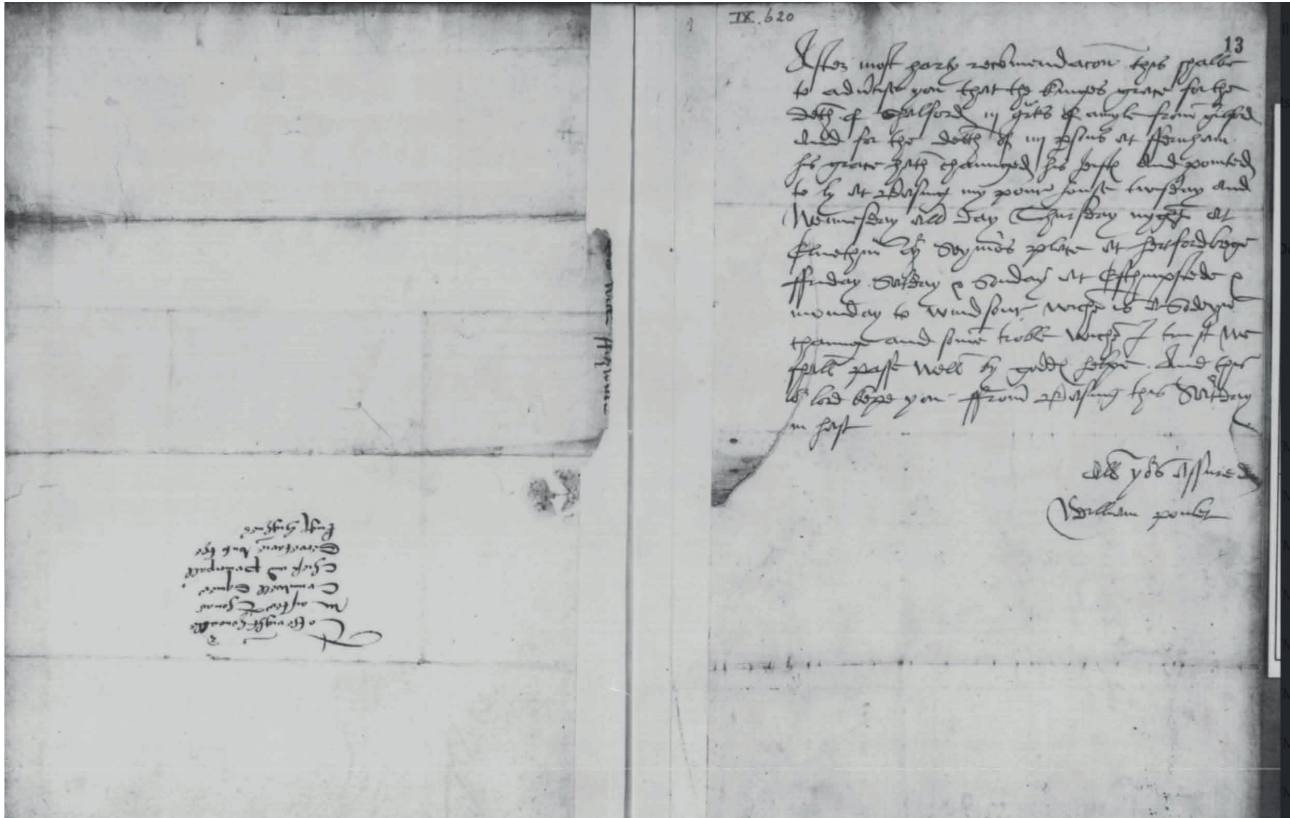 IX. 620
13
After most harty recomendacon this shalbe
to advise you that the kinges grace for the
deth of in of a myle from
And for the deth of iij psons at ffernham
his grace hath chaunged his and pointed
to ly at Basing my poure house twesday and
Wennesday all day Thursday nyght at
Elvethm Sr Seymors place at hertfordbrge
ffriday Satday & Sonday at Esthampstede &
monday to Windsour wiche is A Soden
chaunge and some troble wiche I trust we
shall passe well by godds helpe And thus
or lord kepe you ffrom Basing this Satday
in hast
All yors Assured
William poulet
To the right honorable
Master Thomas
Cromwell Squier
Cheff and
Secretarie unto the
kyngs highnes